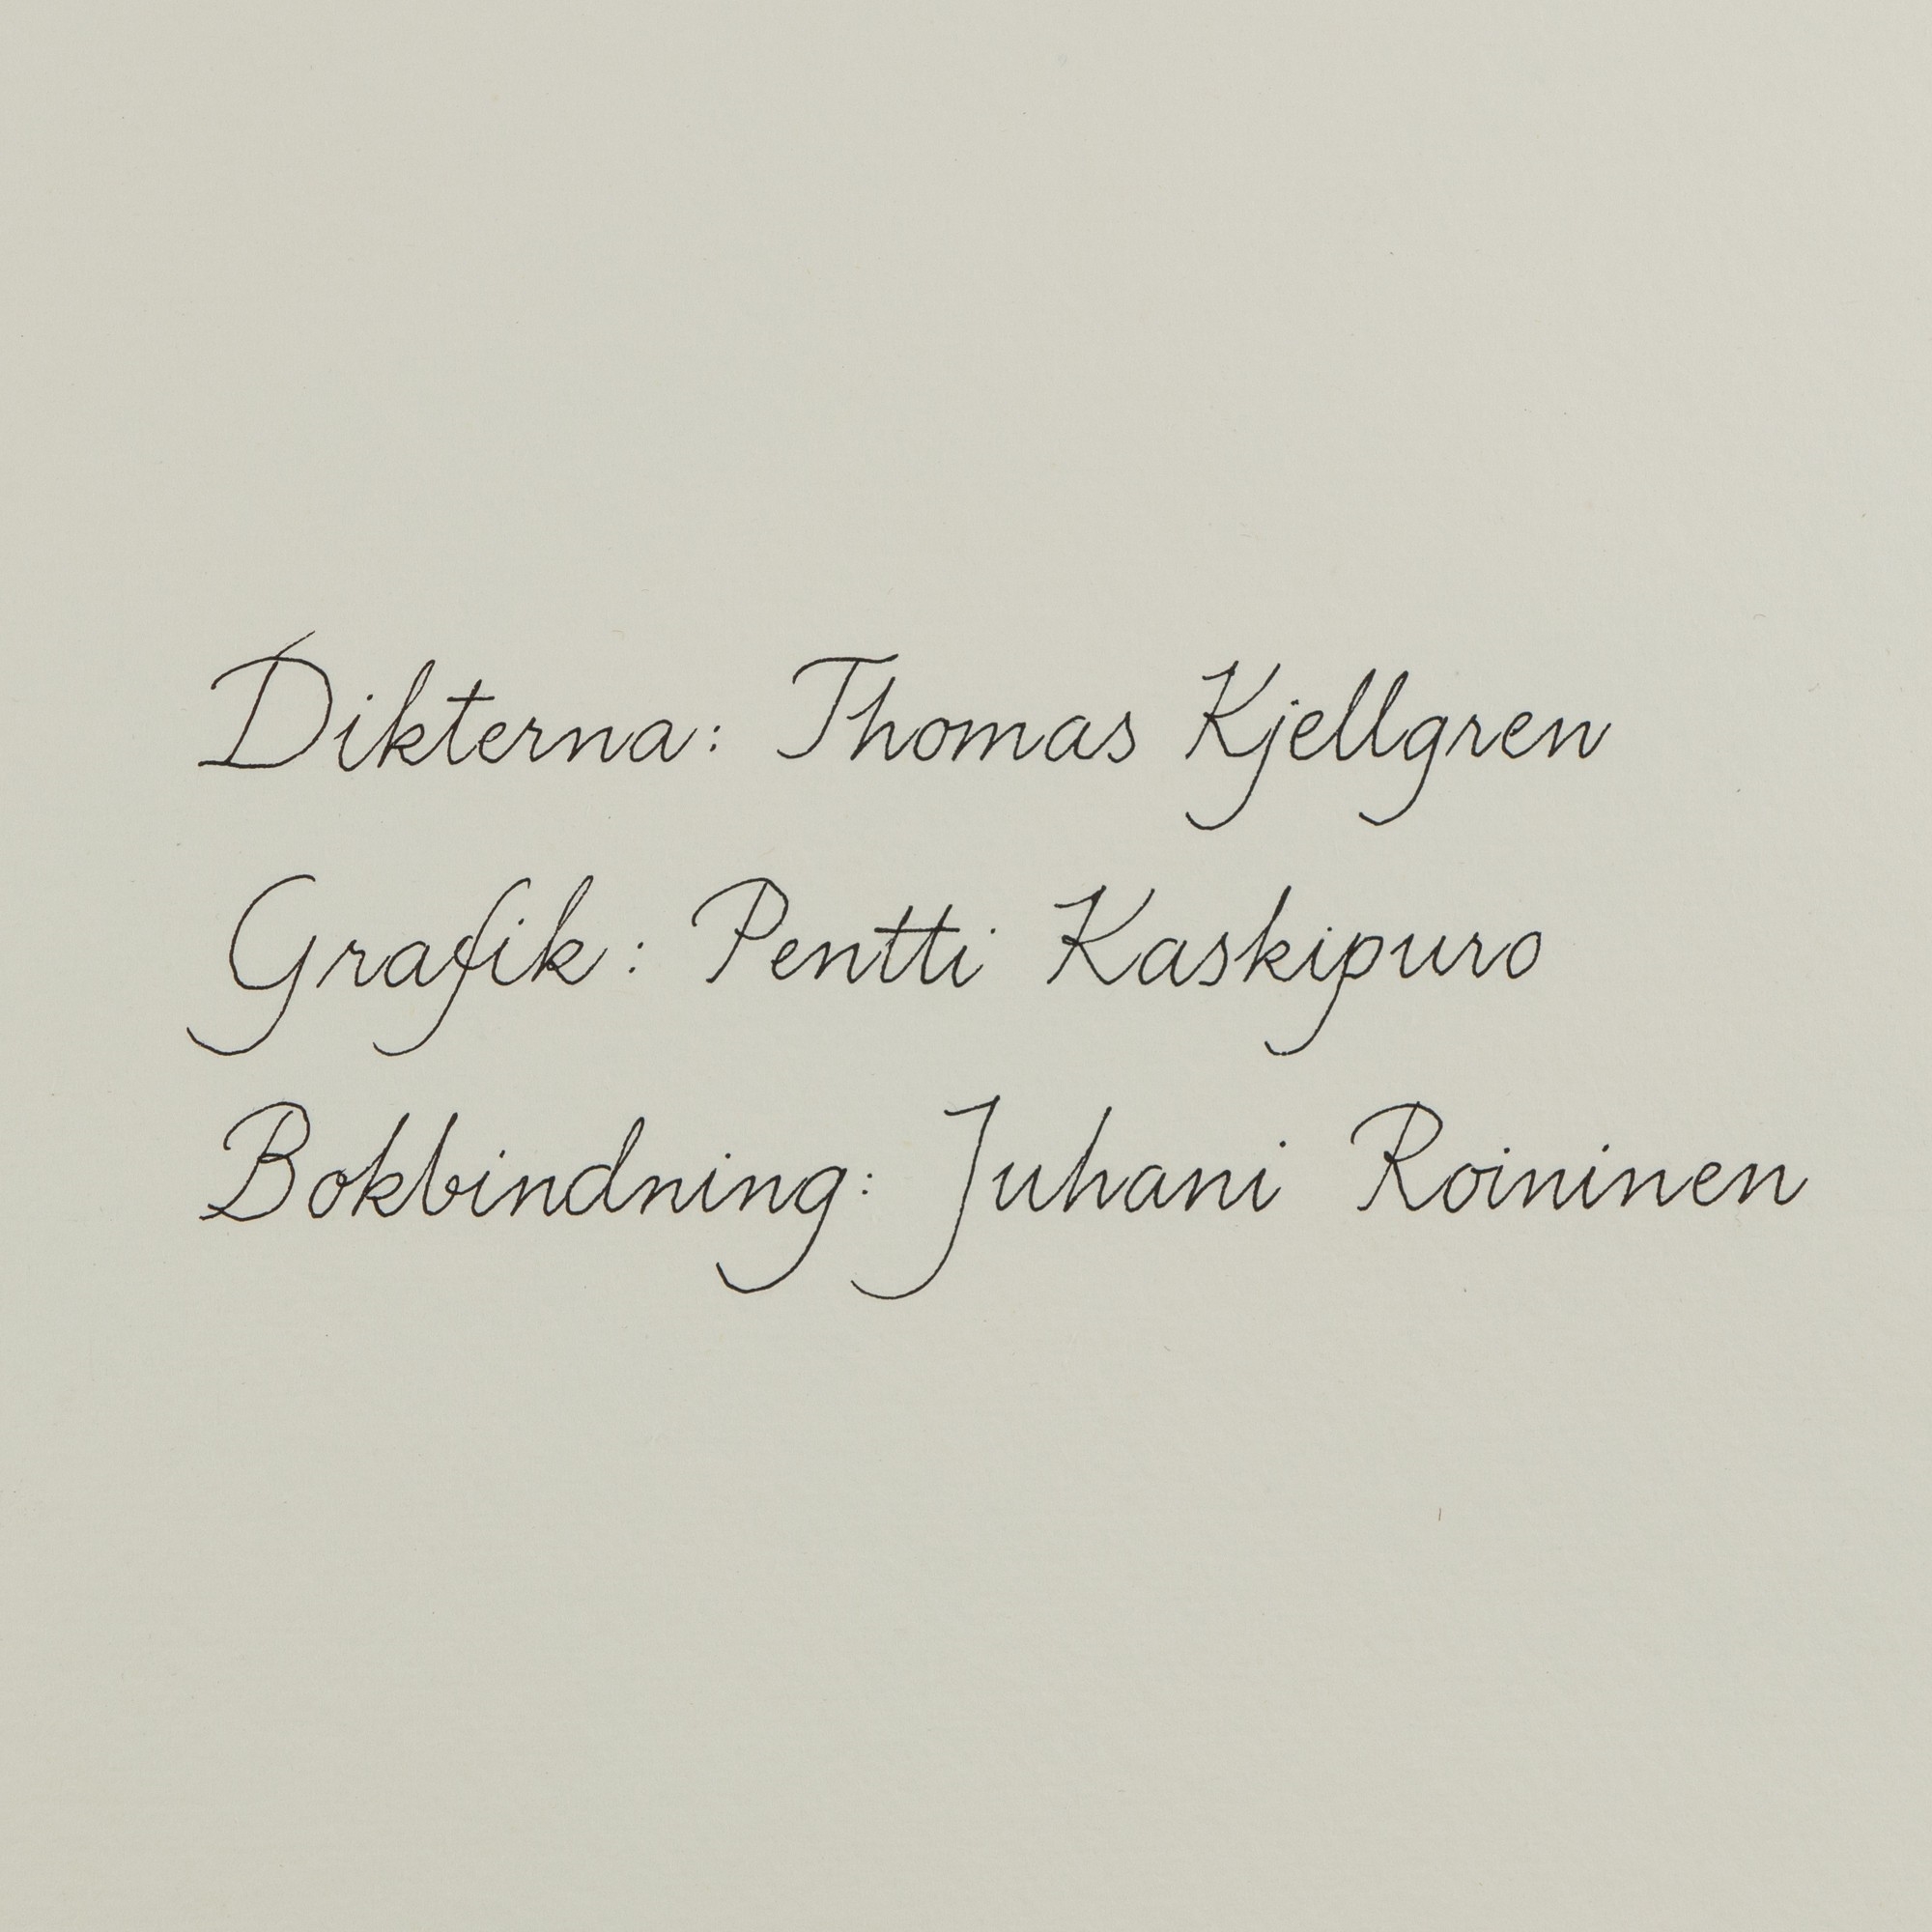 Dikterna: Thomas Kjellgren
Grafik: Pentti Kaskipuro
Bokbindning: Juhani Roininen